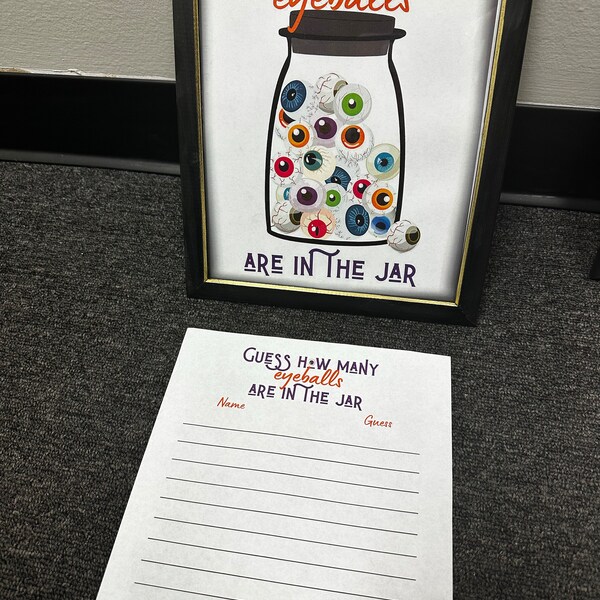 eyeballs
ARE IN THE JAR
GUESS HOW MANY
eyeballs
ARE IN THE JAR
Name
Guess